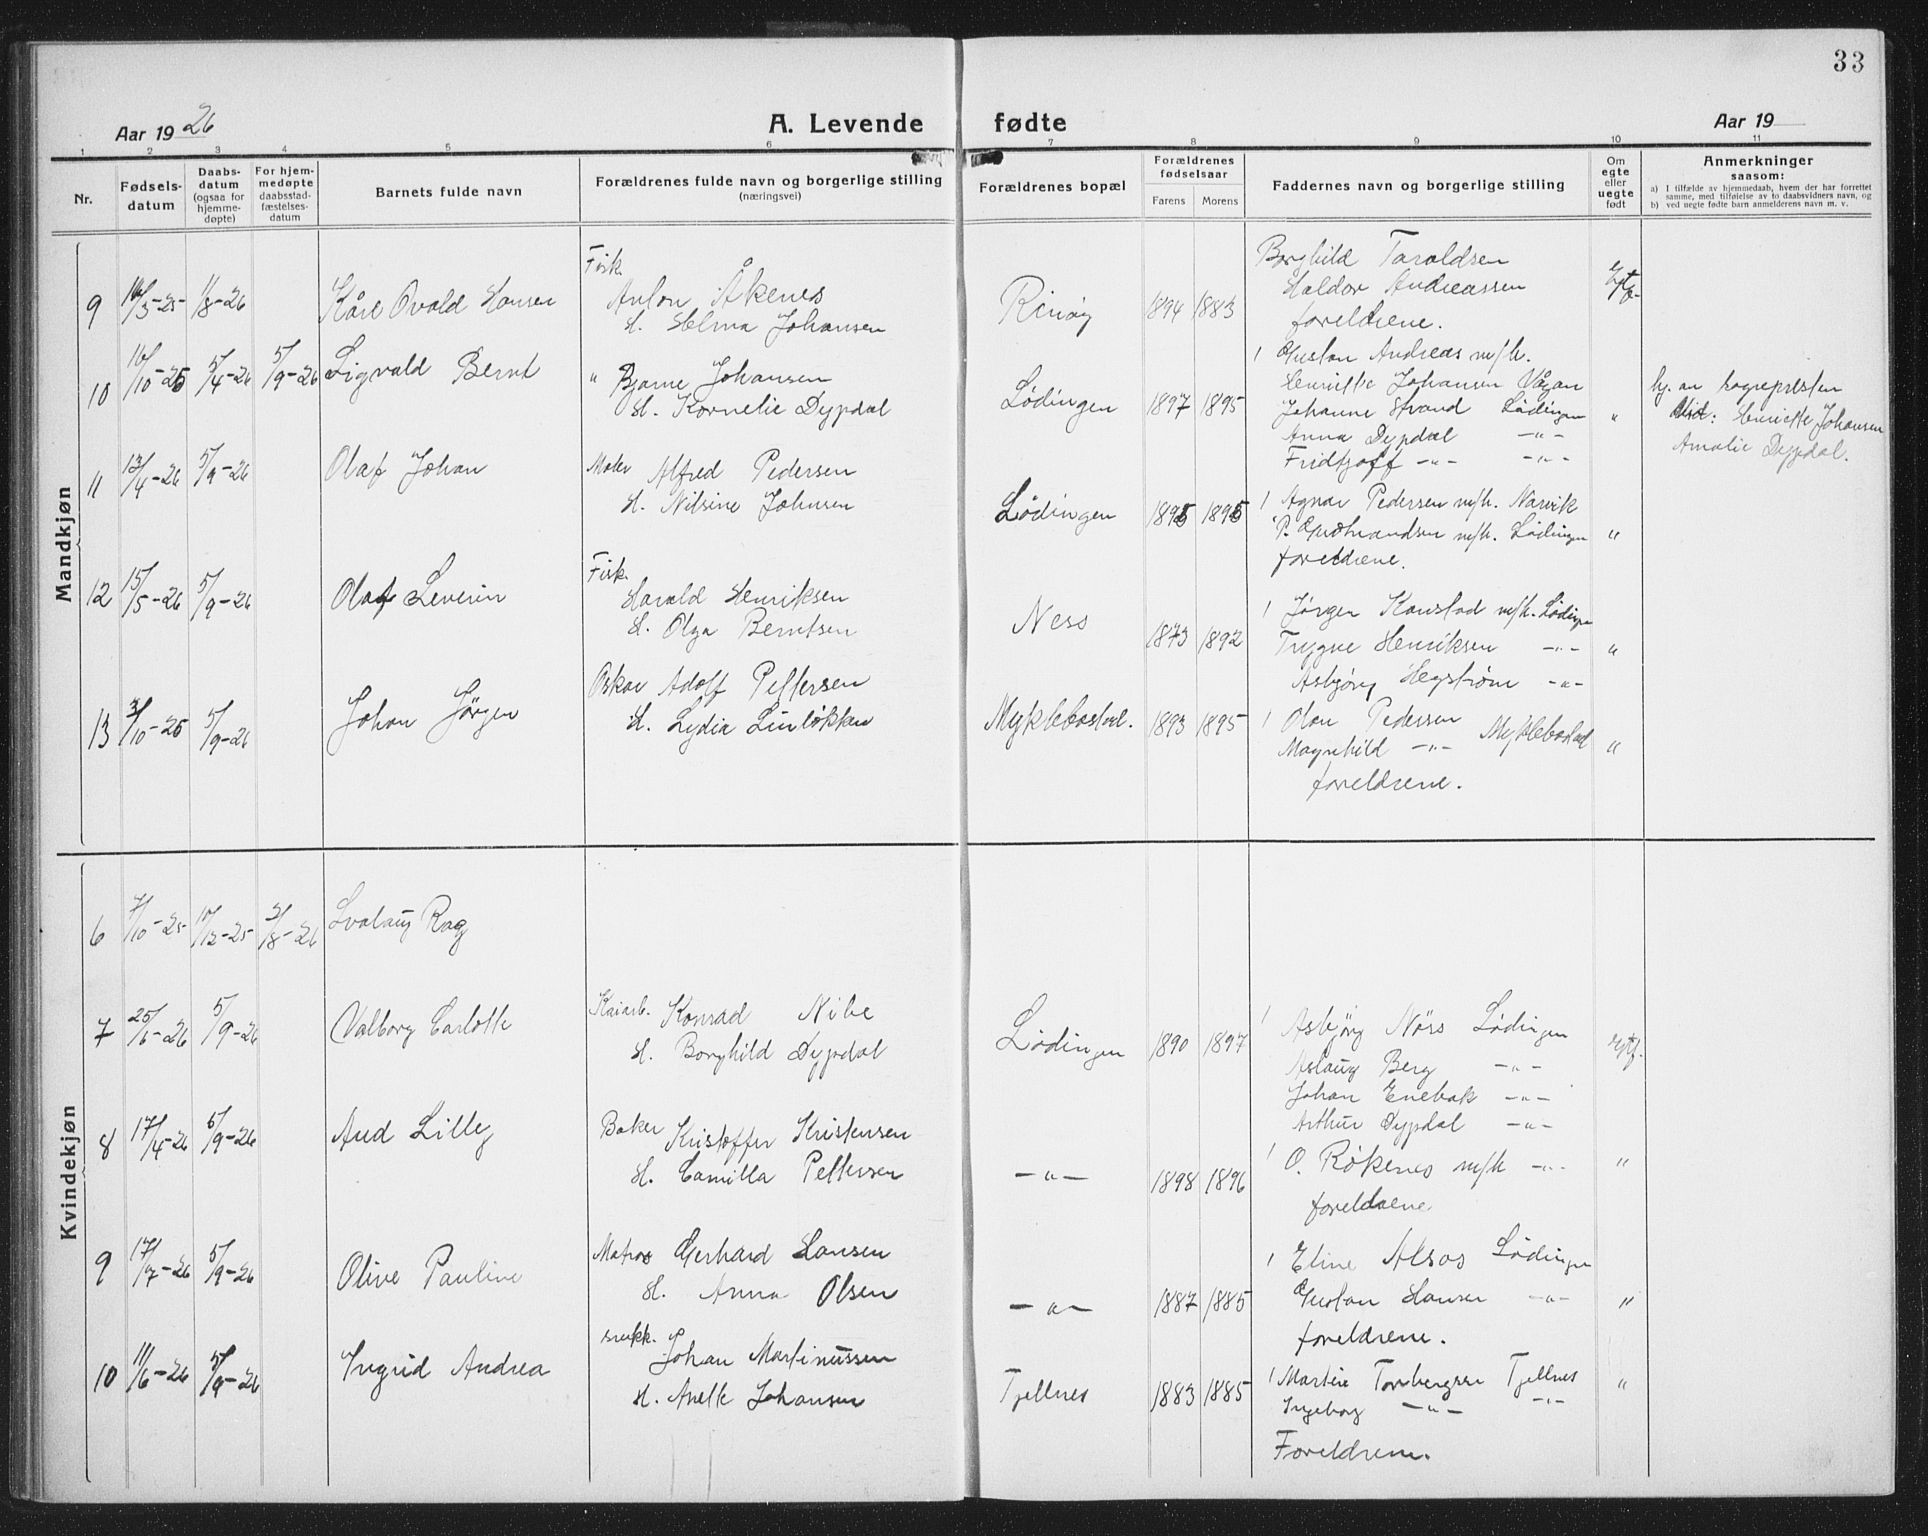 33
Aar 1926
A. Levende fødte
Aar 19
1 2 3 4 5 6 7 8 9 10 11
Nr.
Fødsels-
datum
Daabs-
datum
(ogsaa for
hjemme-
døpte)
For hjem-
medøpte
daabsstad-
fæstelses-
datum
Barnets fulde navn
Forældrenes fulde navn og borgerlige stilling
(næringsvei)
Forældrenes bopæl
Forældrenes
fødselsaar
Farens
Morens
Faddernes navn og borgerlige stilling
Om
egte
eller
uegte
født
Anmerkninger
saasom:
a) I tilfælde av hjemmedaab, hvem der har forrettet
samme, med tilføielse av to daabsvidners navn, og
b) ved uegte fødte barn anmelderens navn m. v.
Mandkjøn
9 16/3-25 1/8-26 Kåre Ovald Hansen
Fisk.
Anton Åkenes
H. Helma Johansen
Rinøy 1894 1883
Borghild Taraldsen
Haldor Andreassen
foreldrene.
Egtf.
10 16/10-25 5/4-26 5/9-26 Sigvald Bernt
" Bjarne Johansen
H. Kornelie Dypdal
Lødingen 1897 1895
1 Gustav Andreas m/h.
Henriette Johansen Vågan
Johanne Strand Lødingen
Anna Dypdal -"-
Fridtjoff -"- -"-
"
hj. av sognepresten
Vid: Henriette Johansen
Amalie Dypdal.
11 13/4-26 5/9-26 Olaf Johan
Maler Alfred Pedersen
H. Nilsine Johnsen
Lødingen 1895 1895
1 Agnar Pedersen m/h. Narvik
P. Gudmundsen m/h. Lødingen
foreldrene.
"
12 15/5-26 5/9-26 Olaf Severin
Fisk.
Harald Henriksen
H. Olga Berntsen
Ness 1873 1892
1 Jørgen Kanstad m/h. Lødingen
Trygve Henriksen -"-
Asbjørg Hegstrøm -"-
"
13 31/10-25 5/9-26 Johan Jørgen
Oskar Adolf Pettersen
H. Lydia Linløkken
Myklebostad. 1893 1895
1 Olav Pedersen
Magnhild -"- Myklebostad
foreldrene.
"
Kvindekjøn
6 7/10-25 10/12-25 2/8-26 Svalaug Rag
7 25/6-26 5/9-26 Valborg Carlotte
Kaiarb. Konrad Nibe
H. Borghild Dypdal
Lødingen 1890 1897
1 Asbjørg Nörs Lødingen
Aslaug Berg -"-
Johan Enebak -"-
Arthur Dypdal -"-
egtf.
8 17/4-26 5/9-26 Aud Lilly
Baker Kristoffer Kristensen
H. Camilla Pettersen
-"- 1898 1896
1 O. Røkenes m/h -"-
foreldrene
"
9 17/7-26 5/9-26 Olive Pauline
Matros Gerhard Hansen
H. Anna Olsen
-"- 1887 1885
1 Eline Alsos Lødingen
Gustav Hansen -"-
foreldrene.
"
10 11/6-26 5/9-26 Ingrid Andrea
snekk. Johan Martinussen
H. Anette Johansen
Tjellnes 1883 1885
1 Martine Torbergsen Tjellnes
Ingeborg -"- -"-
Foreldrene.
"